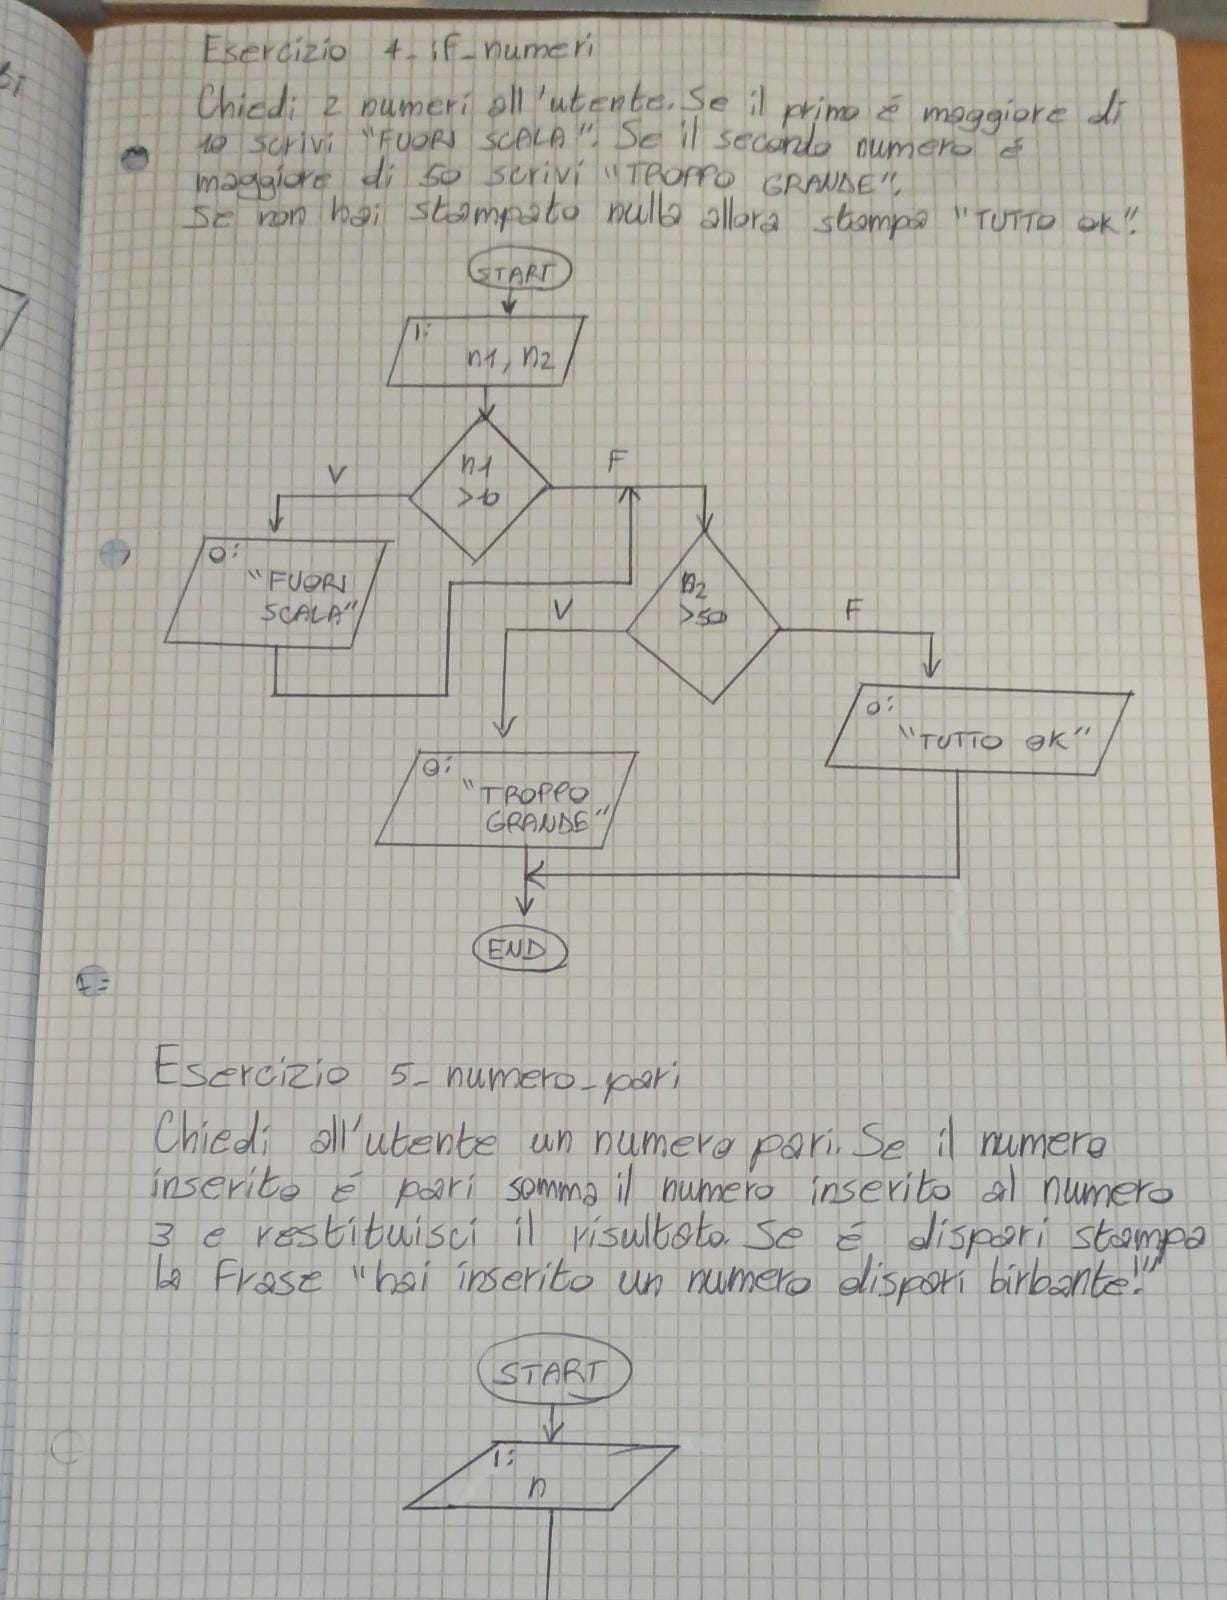 Esercizio 4_if_numeri
Chiedi 2 numeri all'utente. Se il primo é maggiore di
10 scrivi "FUORI SCALA". Se il secondo numero é
maggiore di 50 scrivi "TROPPO GRANDE".
Se non hai stampato nulla allora stampa "TUTTO OK".
START
I:
n1, n2
n1
>10
V
F
O:
"FUORI
SCALA"
n2
>50
V
F
O:
"TUTTO OK"
O:
"TROPPO
GRANDE"
END
Esercizio 5_numero_pari
Chiedi all'utente un numero pari. Se il numero
inserito é pari somma il numero inserito al numero
3 e restituisci il risultato. Se é dispari stampa
la frase "hai inserito un numero dispari birbante!"
START
I:
n